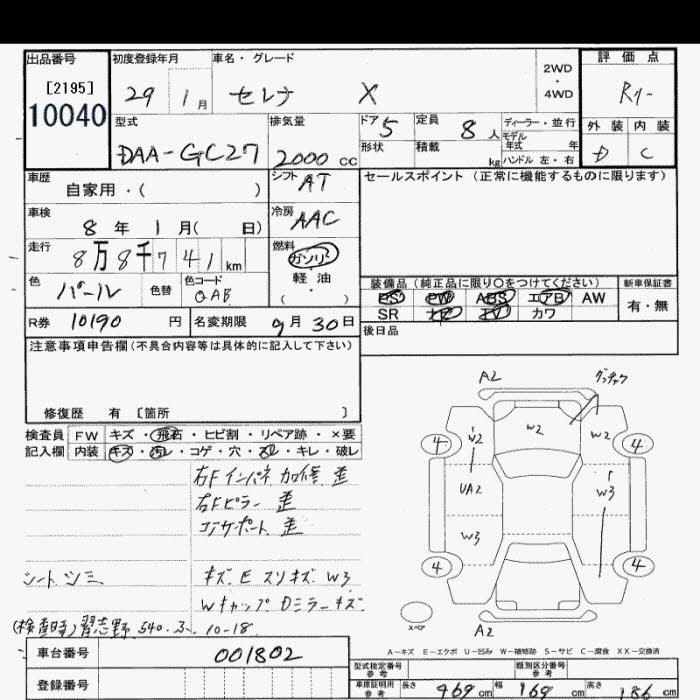 出品番号 初度登録年月 車名・グレード 2WD・4WD 評価点
[2195] 29 1月 セレナ X R1-
10040 型式 排気量 ドア 5 定員 8人 ディーラー・並行 外装 内装
モデル年式 年
DAA-GC27 2000cc 形状 積載 kg ハンドル 左・右 D C
車歴 シフト AT セールスポイント(正常に機能するものに限ります)
自家用・( )
車検 8年 1月( 日) 冷房 AAC
走行 8万8千741km 燃料 ガソリン
軽油
( )
色 パール 色替 色コード QAB 装備品(純正品に限り○をつけてください) 新車保証書
PS PW ABS エアB AW 有・無
SR ナビ TV カワ
R券 10190円 名変期限 9月30日 後日品
注意事項申告欄(不具合内容等は具体的に記入して下さい)
修復歴 有 [箇所 ]
検査員 FW キズ・飛石・ヒビ割・リペア跡・×要
記入欄 内装 キズ・汚レ・コゲ・穴・スレ・キレ・破レ
右Fインパネ 加修 歪
右Fピラー 歪
コアサポート 歪
シートシミ キズ E スリキズ W3
Wキャップ Dミラーキズ
(検査時)習志野 540 ふ 10-18
A2
W2 W2 W2
4 4
UA2 W3
W3
4 4
スペア
A2
A-キズ E-エクボ U-凹み W-補修跡 S-サビ C-腐食 XX-交換済
車台番号 001802
登録番号
型式指定番号 参考 類別区分番号 参考
車庫証明用 参考 長さ 469cm 幅 169cm 高さ 186cm